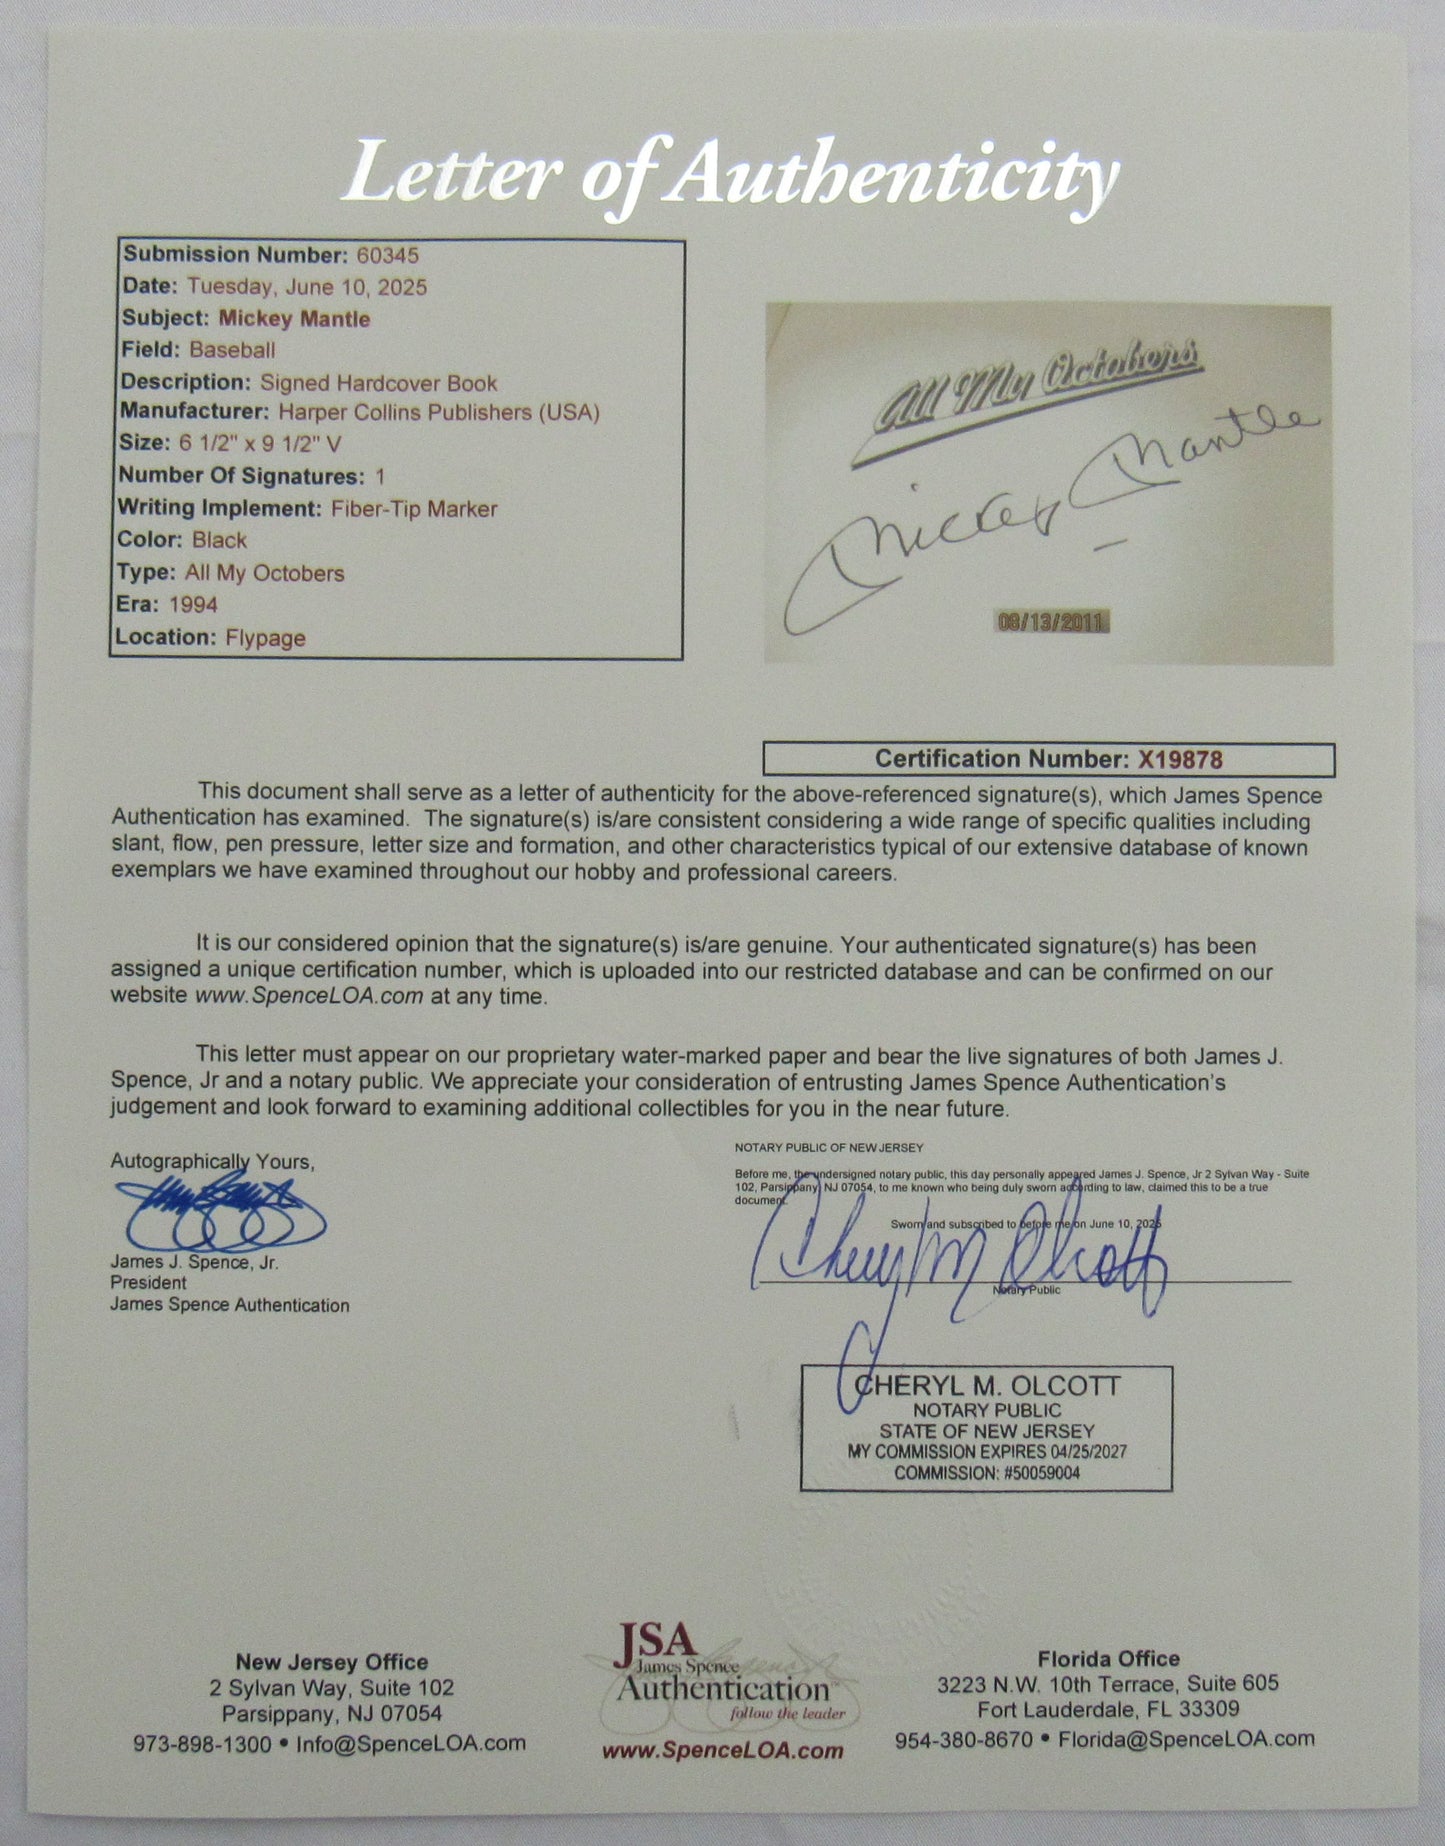 Letter of Authenticity
Submission Number: 60345
Date: Tuesday, June 10, 2025
Subject: Mickey Mantle
Field: Baseball
Description: Signed Hardcover Book
Manufacturer: Harper Collins Publishers (USA)
Size: 6 1/2" x 9 1/2" V
Number Of Signatures: 1
Writing Implement: Fiber-Tip Marker
Color: Black
Type: All My Octobers
Era: 1994
Location: Flypage
All My Octobers
Mickey Mantle
08/13/2011
Certification Number: X19878
This document shall serve as a letter of authenticity for the above-referenced signature(s), which James Spence
Authentication has examined. The signature(s) is/are consistent considering a wide range of specific qualities including
slant, flow, pen pressure, letter size and formation, and other characteristics typical of our extensive database of known
exemplars we have examined throughout our hobby and professional careers.
It is our considered opinion that the signature(s) is/are genuine. Your authenticated signature(s) has been
assigned a unique certification number, which is uploaded into our restricted database and can be confirmed on our
website www.SpenceLOA.com at any time.
This letter must appear on our proprietary water-marked paper and bear the live signatures of both James J.
Spence, Jr and a notary public. We appreciate your consideration of entrusting James Spence Authentication's
judgement and look forward to examining additional collectibles for you in the near future.
Autographically Yours,
James J. Spence, Jr.
President
James Spence Authentication
NOTARY PUBLIC OF NEW JERSEY
Before me, the undersigned notary public, this day personally appeared James J. Spence, Jr 2 Sylvan Way - Suite
102, Parsippany, NJ 07054, to me known who being duly sworn according to law, claimed this to be a true
document.
Sworn and subscribed to before me on June 10, 2025
Cheryl M Olcott
Notary Public
CHERYL M. OLCOTT
NOTARY PUBLIC
STATE OF NEW JERSEY
MY COMMISSION EXPIRES 04/25/2027
COMMISSION: #50059004
New Jersey Office
2 Sylvan Way, Suite 102
Parsippany, NJ 07054
973-898-1300 • Info@SpenceLOA.com
JSA
James Spence
Authentication
follow the leader
www.SpenceLOA.com
Florida Office
3223 N.W. 10th Terrace, Suite 605
Fort Lauderdale, FL 33309
954-380-8670 • Florida@SpenceLOA.com